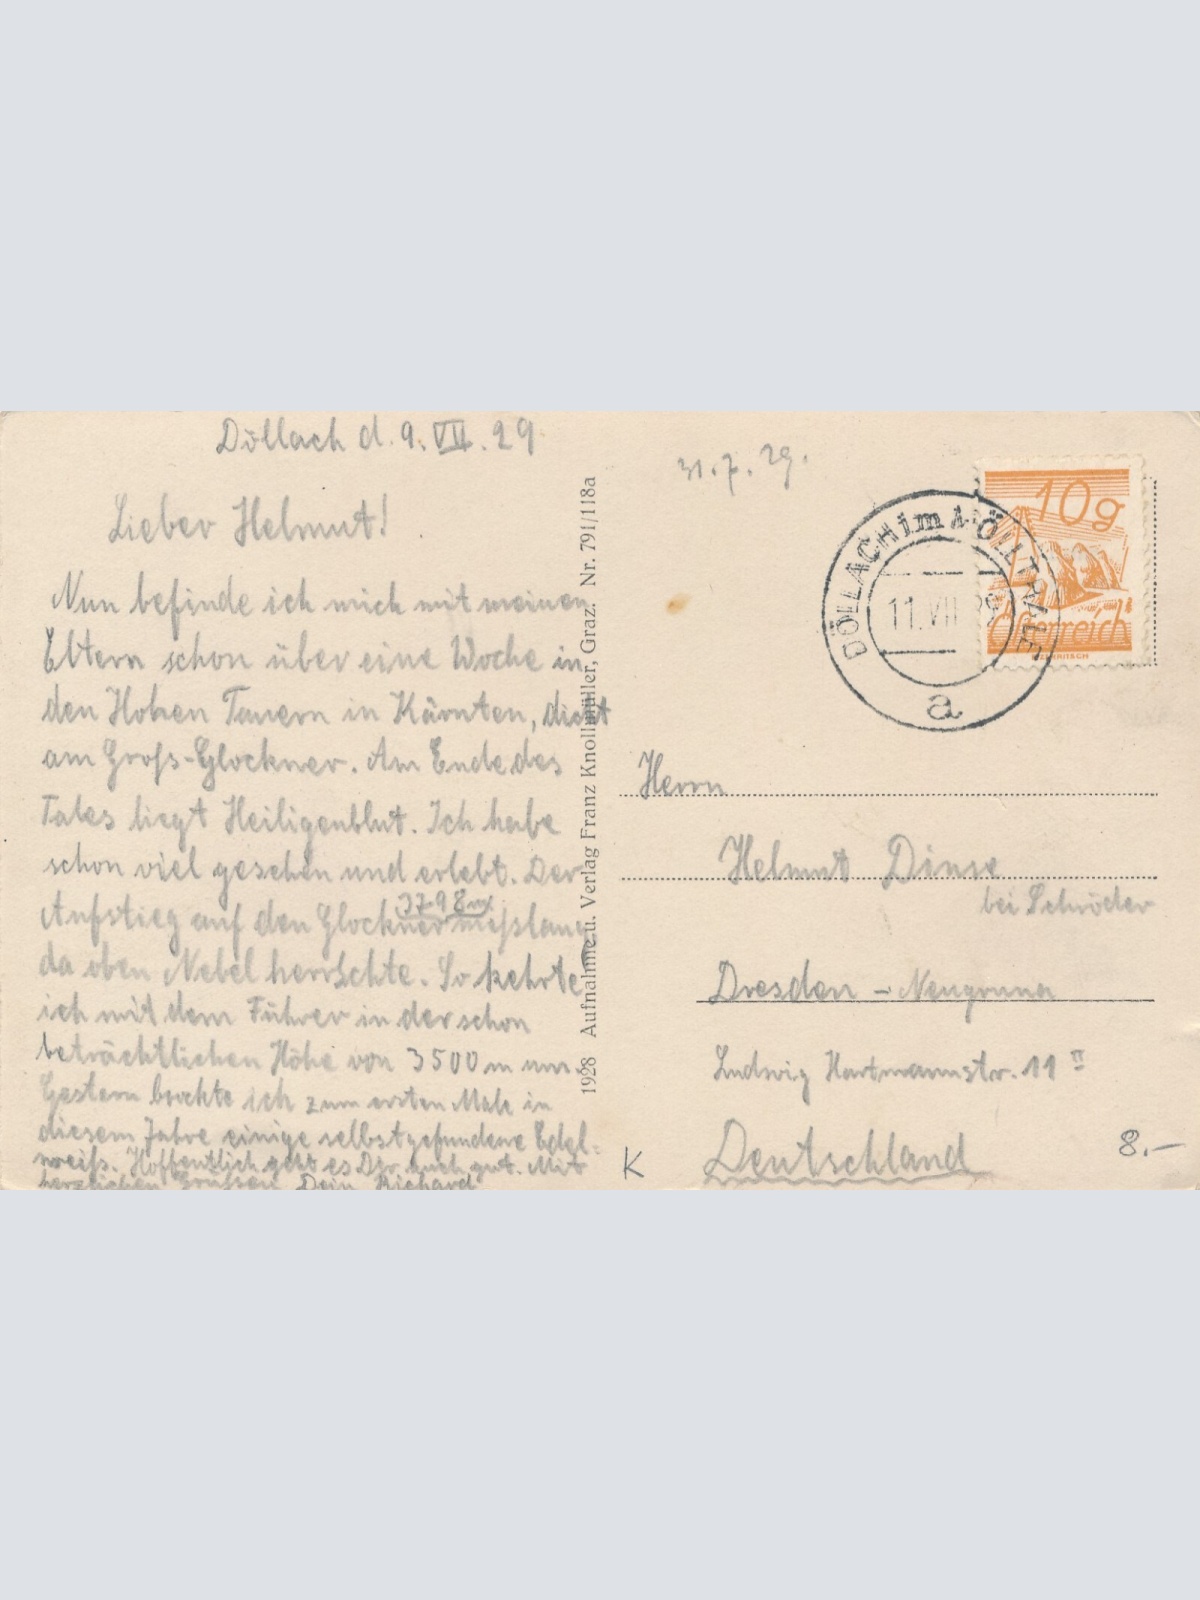 Döllach d. 9. VII. 29.
Lieber Helmut!
Nun befinde ich mich mit meinen
Eltern schon über eine Woche in
den Hohen Tauern in Kärnten, dicht
am Groß-Glockner. Am Ende des
Tales liegt Heiligenblut. Ich habe
schon viel gesehen und erlebt. Der
3798 m
Aufstieg auf den Glockner mißlang
da oben Nebel herrschte. So kehrte
ich mit dem Führer in der schon
beträchtlichen Höhe von 3500 m um.
Gestern brachte ich zum ersten Male in
diesem Jahre einige selbstgefundene Edel-
weiß. Hoffentlich geht es Dir auch gut. Mit
herzlichen Grüssen Dein Richard
1928 Aufnahme u. Verlag Franz Knollmüller, Graz. Nr. 791/118a
31.7.29.
10g
Österreich
DÖLLACH im MÖLLTALE
11.VII 29
a
Herrn
Helmut Dinse
bei Schröder
Dresden - Neugruna
Ludwig Hartmannstr. 11 II
Deutschland
K
8.-